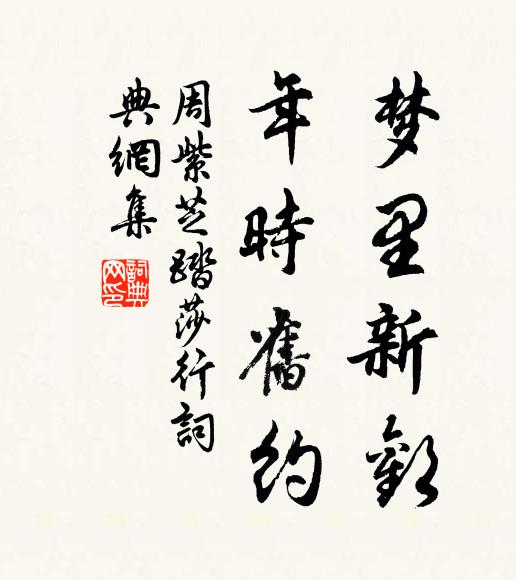 梦里新歡
年時舊約
周紫芝踏莎行詞
典網集
詞典
网印